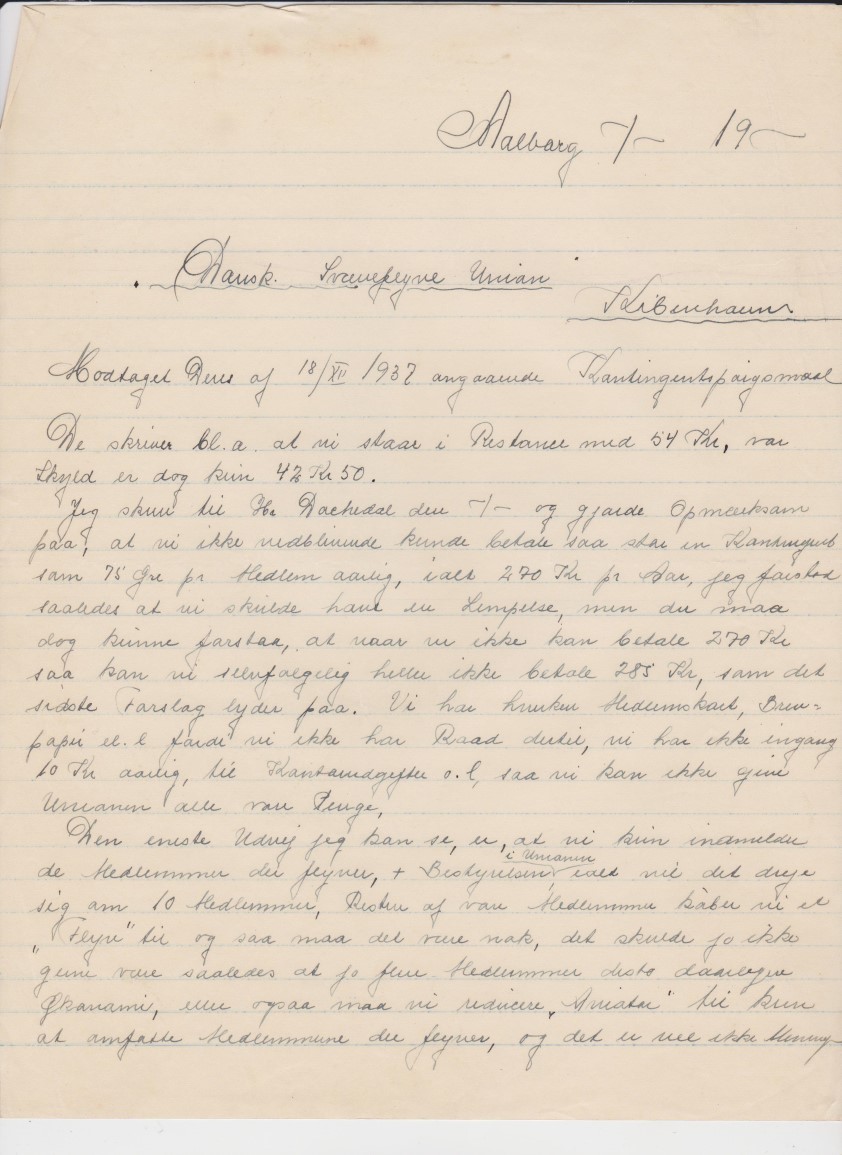 Aalborg -/- 19-
Dansk. Svæveflyve Union
København.
Modtaget Deres af 18/XII 1937 angaaende Kontingentspørgsmaal
De skriver bl.a. at vi staar i Restance med 54 Kr, vor
Skyld er dog kun 42 Kr 50.
Jeg skrev til Hr den -/- og gjorde Opmærksom
paa, at vi ikke vedblivende kunde betale saa stor en Kontingent
som 75 Øre pr Medlem aarlig, ialt 270 Kr pr Aar, jeg forstod
saaledes at vi skulde have en Lempelse, men du maa
dog kunne forstaa, at naar vi ikke kan betale 270 Kr
saa kan vi selvfølgelig heller ikke betale 285 Kr, som det
sidste Forslag lyder paa. Vi har hverken Medlemskort, Brev=
papir el. l fordi vi ikke har Raad dertil, vi har ikke engang
10 Kr aarlig, til Kontorudgifter o.l, saa vi kan ikke give
Unionen alle vore Penge,
Den eneste Udvej jeg kan se, er, at vi kun indmelder
de Medlemmer der flyver, + Bestyrelsen i Unionen ialt vil det dreje
sig om 10 Medlemmer, Resten af vore Medlemmer køber vi et
"Flyv" til og saa maa det være nok, det skulde jo ikke
gerne være saaledes at jo flere Medlemmer desto daarligere
Økonomi, eller ogsaa maa vi reducere "Aviator" til kun
at omfatte Medlemmerne der flyver, og det er vel ikke Mening-